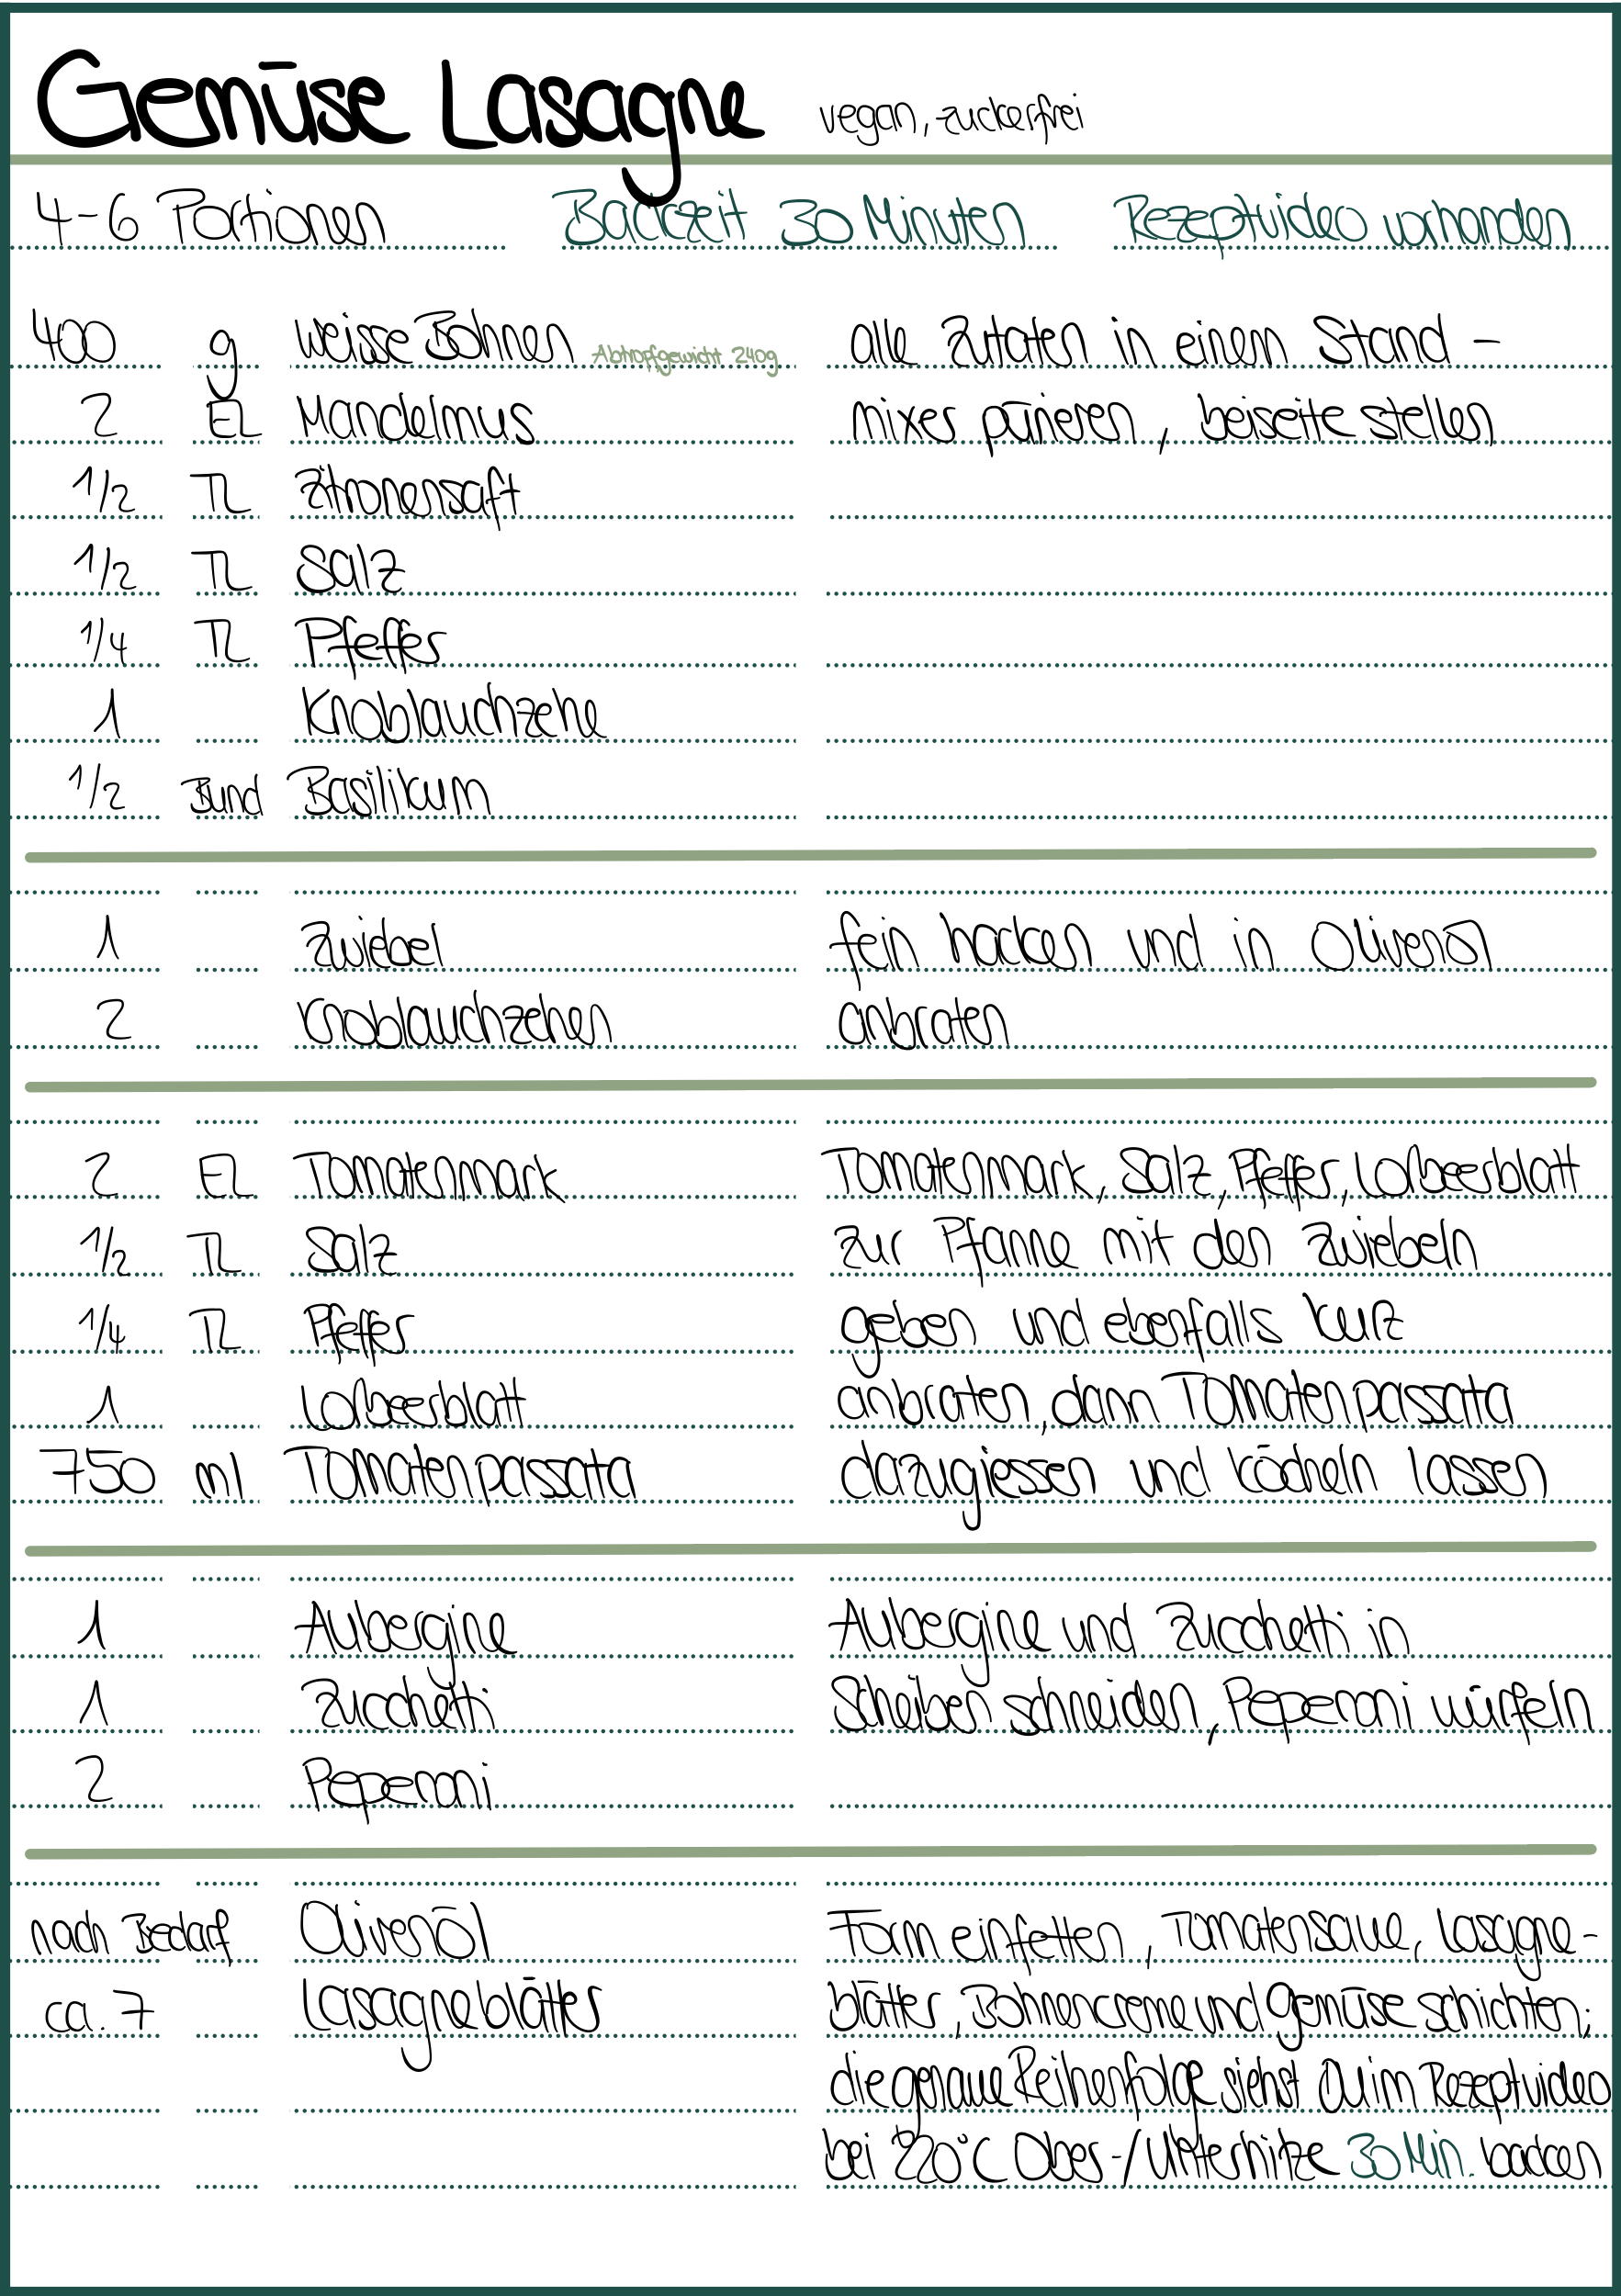 Gemüse Lasagne vegan, zuckerfrei
4-6 Portionen Backzeit 30 Minuten Rezeptvideo vorhanden
400 g weisse Bohnen Abtropfgewicht 240g alle Zutaten in einem Stand-
2 EL Mandelmus mixer pürieren, beiseite stellen
1/2 TL Zitronensaft
1/2 TL Salz
1/4 TL Pfeffer
1 Knoblauchzehe
1/2 Bund Basilikum
1 Zwiebel fein hacken und in Olivenöl
2 Knoblauchzehen anbraten
2 EL Tomatenmark Tomatenmark, Salz, Pfeffer, Lorbeerblatt
1/2 TL Salz zur Pfanne mit den Zwiebeln
1/4 TL Pfeffer geben und ebenfalls kurz
1 Lorbeerblatt anbraten, dann Tomatenpassata
750 ml Tomatenpassata dazugiessen und köcheln lassen
1 Aubergine Aubergine und Zucchetti in
1 Zucchetti Scheiben schneiden, Peperoni würfeln
2 Peperoni
nach Bedarf Olivenöl Form einfetten, Tomatensauce, Lasagne-
ca. 7 Lasagneblätter blätter, Bohnencreme und Gemüse schichten;
die genaue Reihenfolge siehst Du im Rezeptvideo
bei 220°C Ober-/Unterhitze 30 Min. backen